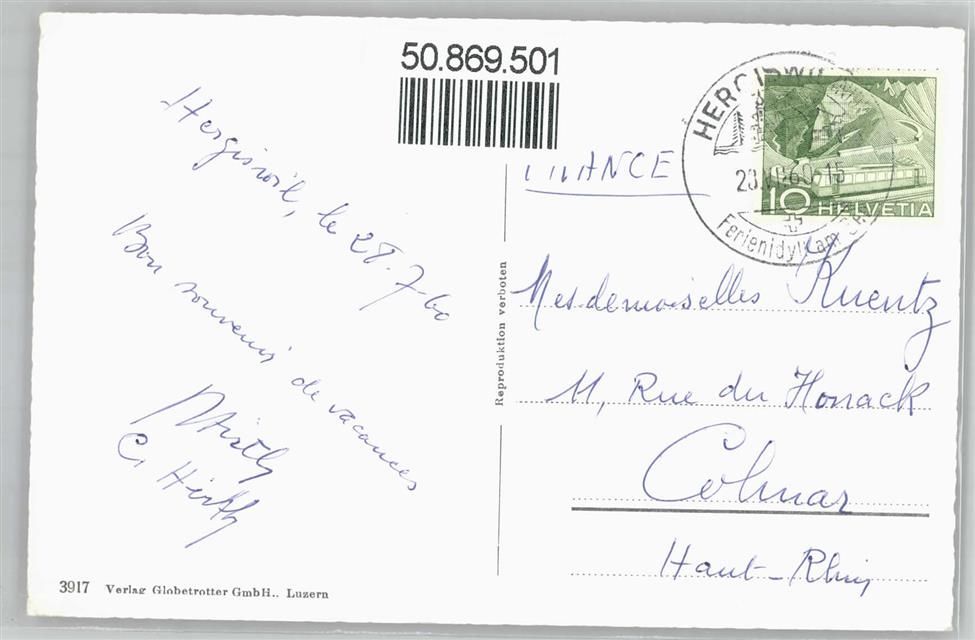 50.869.501
Hergiswil, le 28.7.60
Bon souvenir de vacances
C. Hirtly
FRANCE
HERGISWIL
28.VII.60-15
Ferienidyll am
10 HELVETIA
Mesdemoiselles Kuentz
11, Rue du Honack
Colmar
Haut-Rhin
Reproduktion verboten
3917 Verlag Globetrotter GmbH., Luzern